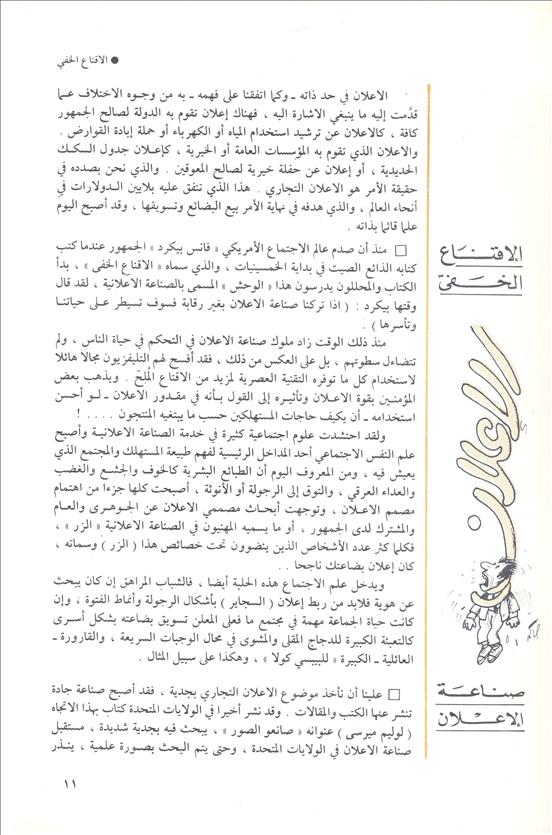 ● الاقناع الخفي
الاعلان في حد ذاته ـ وكما اتفقنا على فهمه ـ به من وجوه الاختلاف عما
قدَّمت إليه ما ينبغي الاشارة اليه ، فهناك إعلان تقوم به الدولة لصالح الجمهور
كافة ، كالاعلان عن ترشيد استخدام المياه أو الكهرباء أو حملة إبادة القوارض .
والاعلان الذي تقوم به المؤسسات العامة أو الخيرية ، كإعلان جدول السكك
الحديدية ، أو إعلان عن حفلة خيرية لصالح المعوقين . والذي نحن بصدده في
حقيقة الأمر هو الاعلان التجاري . هذا الذي تنفق عليه بلايين الدولارات في
أنحاء العالم ، والذي هدفه في نهاية الأمر بيع البضائع وتسويقها ، وقد أصبح اليوم
علما قائما بذاته .
الاقتناع
الخفىّ
□ منذ أن صدم عالم الاجتماع الأمريكي « فانس بيكرد » الجمهور عندما كتب
كتابه الذائع الصيت في بداية الخمسينيات ، والذي سماه « الاقناع الخفى » ، بدأ
الكتاب والمحللون يدرسون هذا « الوحش » المسمى بالصناعة الاعلانية ، لقد قال
وقتها بيكرد : ( اذا تركنا صناعة الاعلان بغير رقابة فسوف تسيطر على حياتنا
وتأسرها ) .
منذ ذلك الوقت زاد ملوك صناعة الاعلان في التحكم في حياة الناس ، ولم
تتضاءل سطوتهم ، بل على العكس من ذلك ، فقد أفسح لهم التليفزيون مجالا هائلا
لاستخدام كل ما توفره التقنية العصرية لمزيد من الاقناع المُلِحّ . ويذهب بعض
المؤمنين بقوة الاعلان وتأثيره إلى القول بأنه في مقدور الاعلان ـ لو أحسن
استخدامه ـ أن يكيف حاجات المستهلكين حسب ما يبتغيه المنتجون . . . . !
ولقد احتشدت علوم اجتماعية كثيرة في خدمة الصناعة الاعلانية وأصبح
علم النفس الاجتماعي أحد المداخل الرئيسية لفهم طبيعة المستهلك والمجتمع الذي
يعيش فيه ، ومن المعروف اليوم أن الطبائع البشرية كالخوف والجشع والغضب
والعداء العرقي ، والتوق إلى الرجولة أو الأنوثة ، أصبحت كلها جزءا من اهتمام
مصمم الاعلان ، وتوجهت أبحاث مصممي الاعلان عن الجوهرى والعام
والمشترك لدى الجمهور ، أو ما يسميه المهنيون في الصناعة الاعلانية « الزر » ،
فكلما كثر عدد الأشخاص الذين ينضوون تحت خصائص هذا ( الزر ) وسماته ،
كان إعلان بضاعتك ناجحا . .
ويدخل علم الاجتماع هذه الحلبة أيضا ، فالشباب المراهق إن كان يبحث
عن هوية فلابد من ربط إعلان ( السجاير ) بأشكال الرجولة وأنماط الفتوة ، وإن
كانت حياة الجماعة مهمة في مجتمع ما فعلى المعلن تسويق بضاعته بشكل أسرى
كالتعبئة الكبيرة للدجاج المقلى والمشوى في محال الوجبات السريعة ، والقارورة ـ
العائلية ـ الكبيرة « للبيبسي كولا » ، وهكذا على سبيل المثال .
الاعلان
صناعة
الإعلان
□ علينا أن نأخذ موضوع الاعلان التجاري بجدية ، فقد أصبح صناعة جادة
تنشر عنها الكتب والمقالات . وقد نشر أخيرا في الولايات المتحدة كتاب بهذا الاتجاه
( لوليم ميرسى ) عنوانه « صانعو الصور » ، يبحث فيه بجدية شديدة ، مستقبل
صناعة الاعلان في الولايات المتحدة ، وحتى يتم البحث بصورة علمية ، ينذر
١١